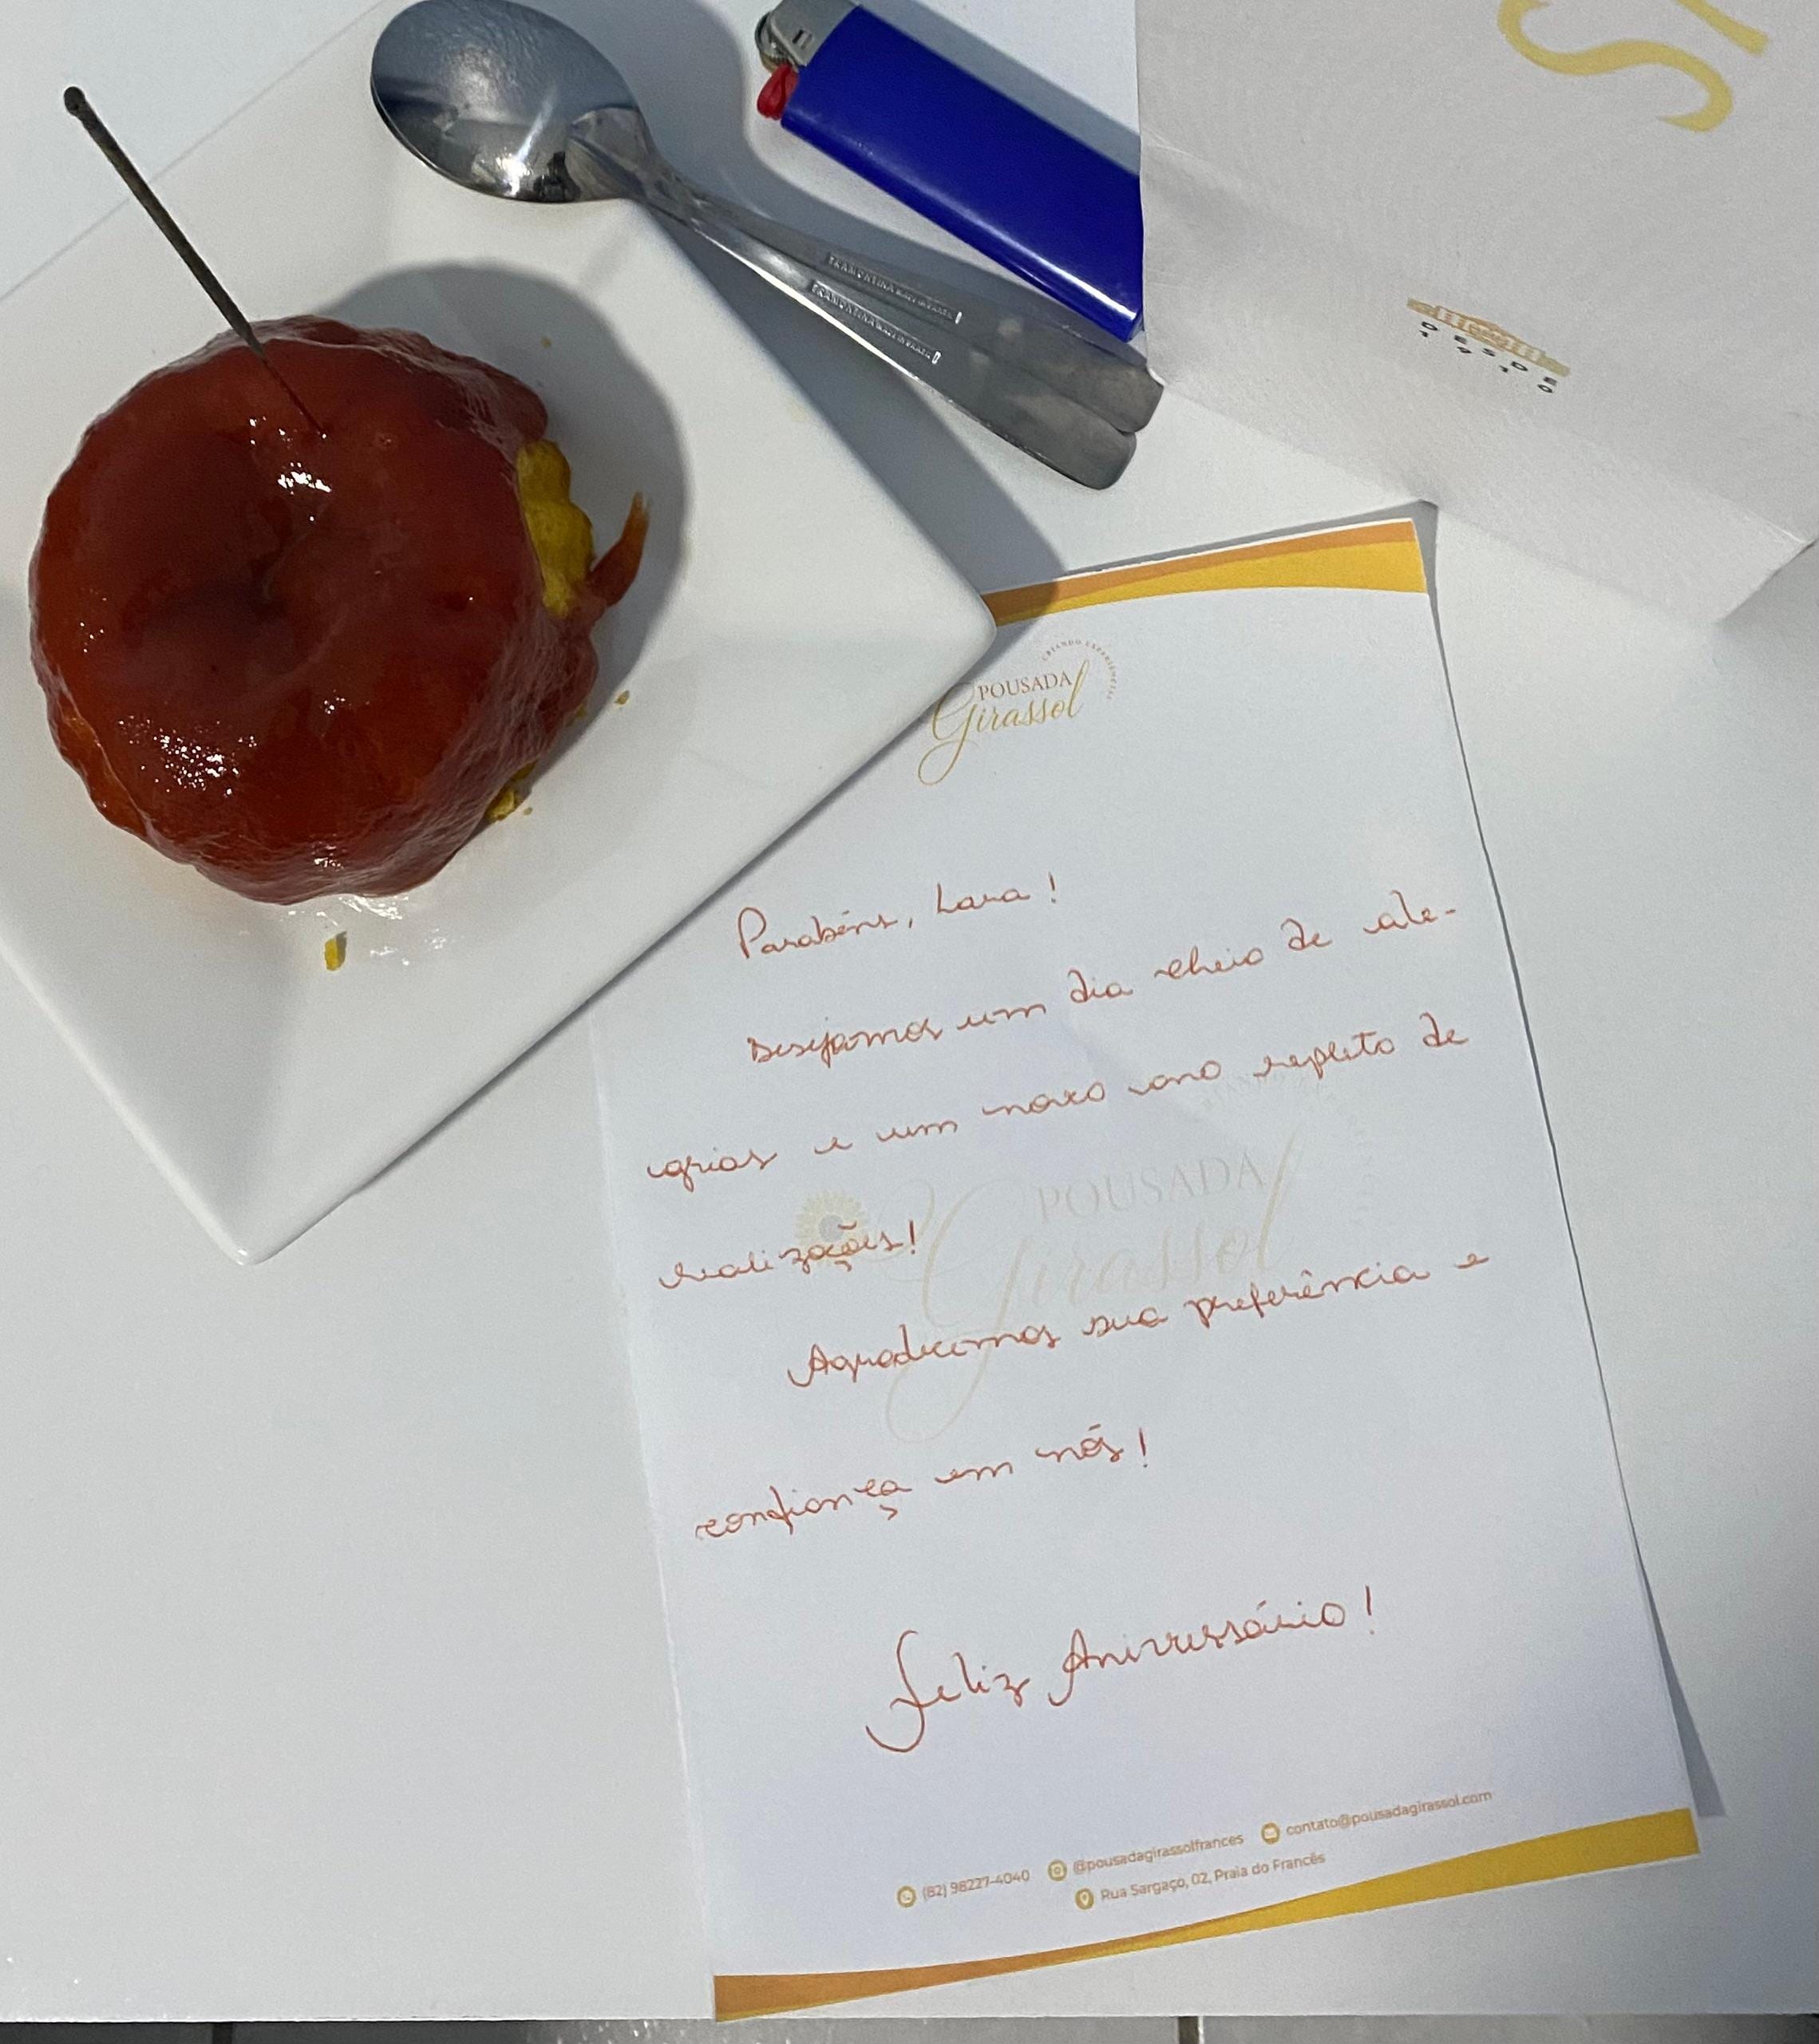 TRAMONTINA
TRAMONTINA
DESDE
1910
CRIANDO EXPERIÊNCIAS
POUSADA
Girassol
Parabéns, Lara!
Desejamos um dia cheio de ale-
grias e um novo ano repleto de
realizações!
POUSADA
Girassol
Agradecemos sua preferência e
confiança em nós!
Feliz Aniversário!
(82) 98227-4040 @pousadagirassolfrances contato@pousadagirassol.com
Rua Sargaço, 02, Praia do Francês